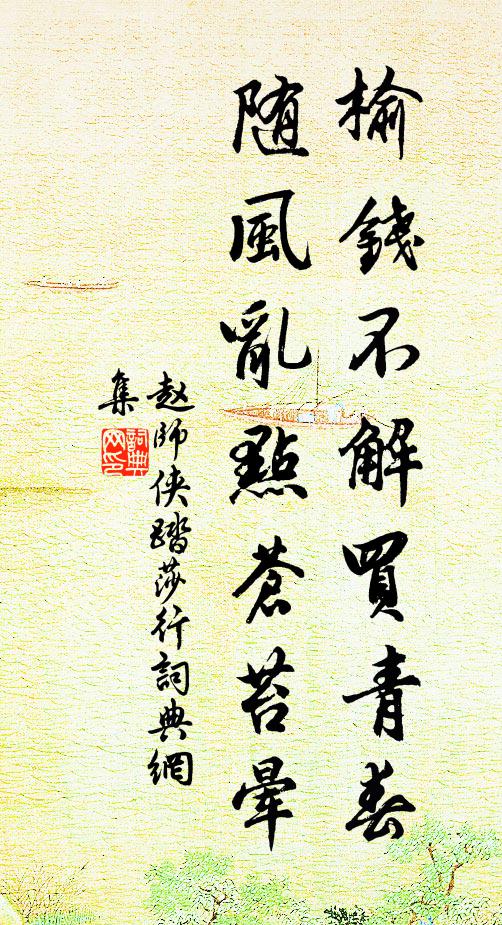 榆錢不解買青春
随風亂點蒼苔暈
赵師侠踏莎行詞典網
集
詞典网印